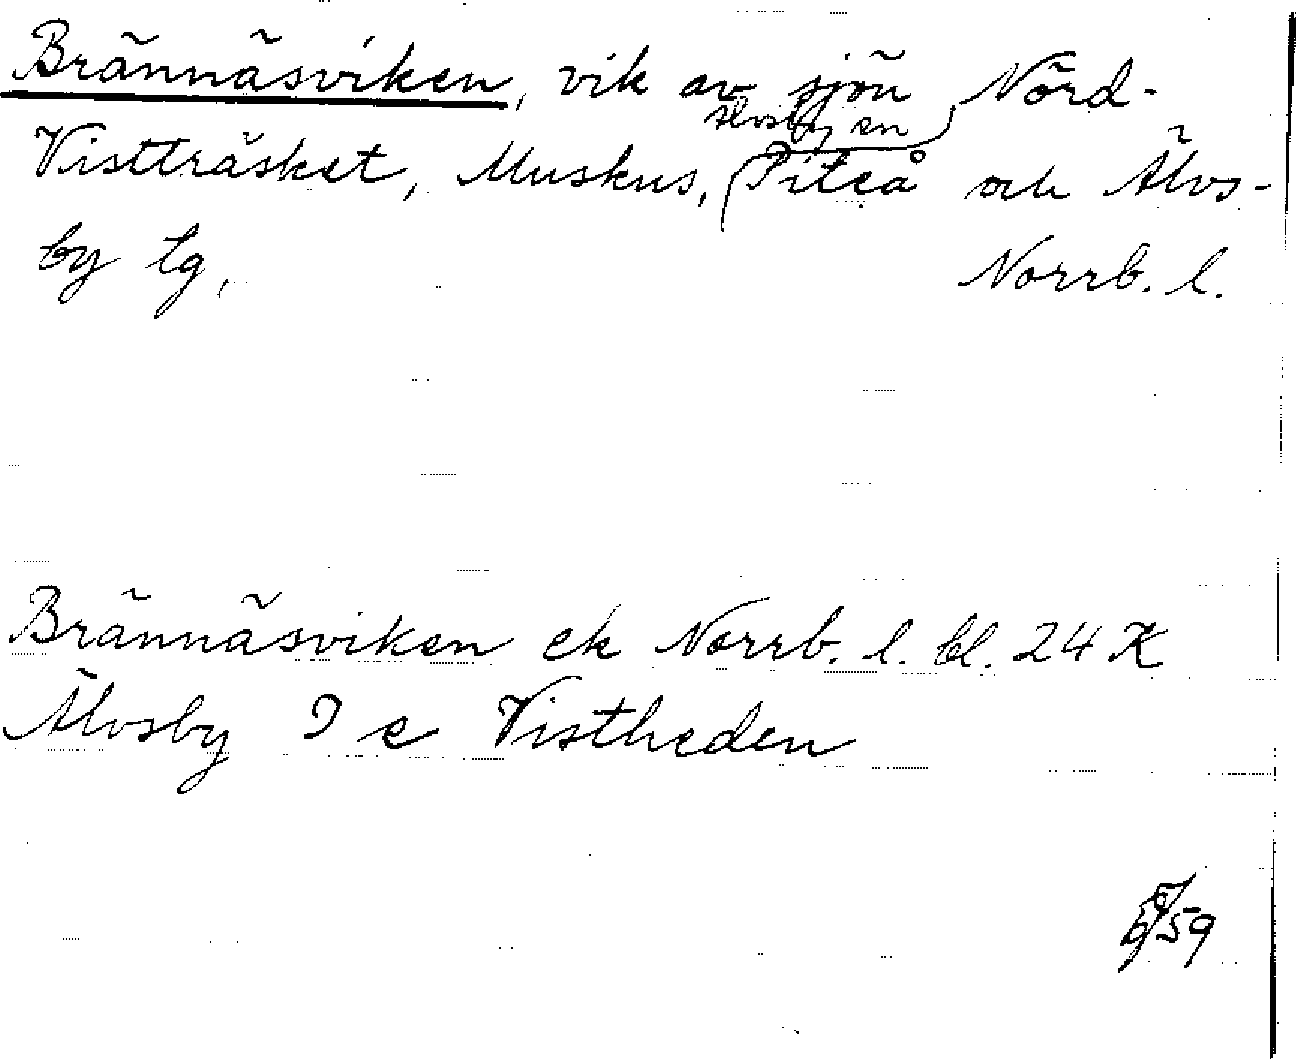 Brännäsviken, vik av sjön Nörd-
Älvsby sn
Vistträsket, Muskus, (Piteå och Älvs-
by tg,
Norrb. l.
Brännäsviken ek Norrb. l. bl. 24 K
Älvsby I c Vistheden
59